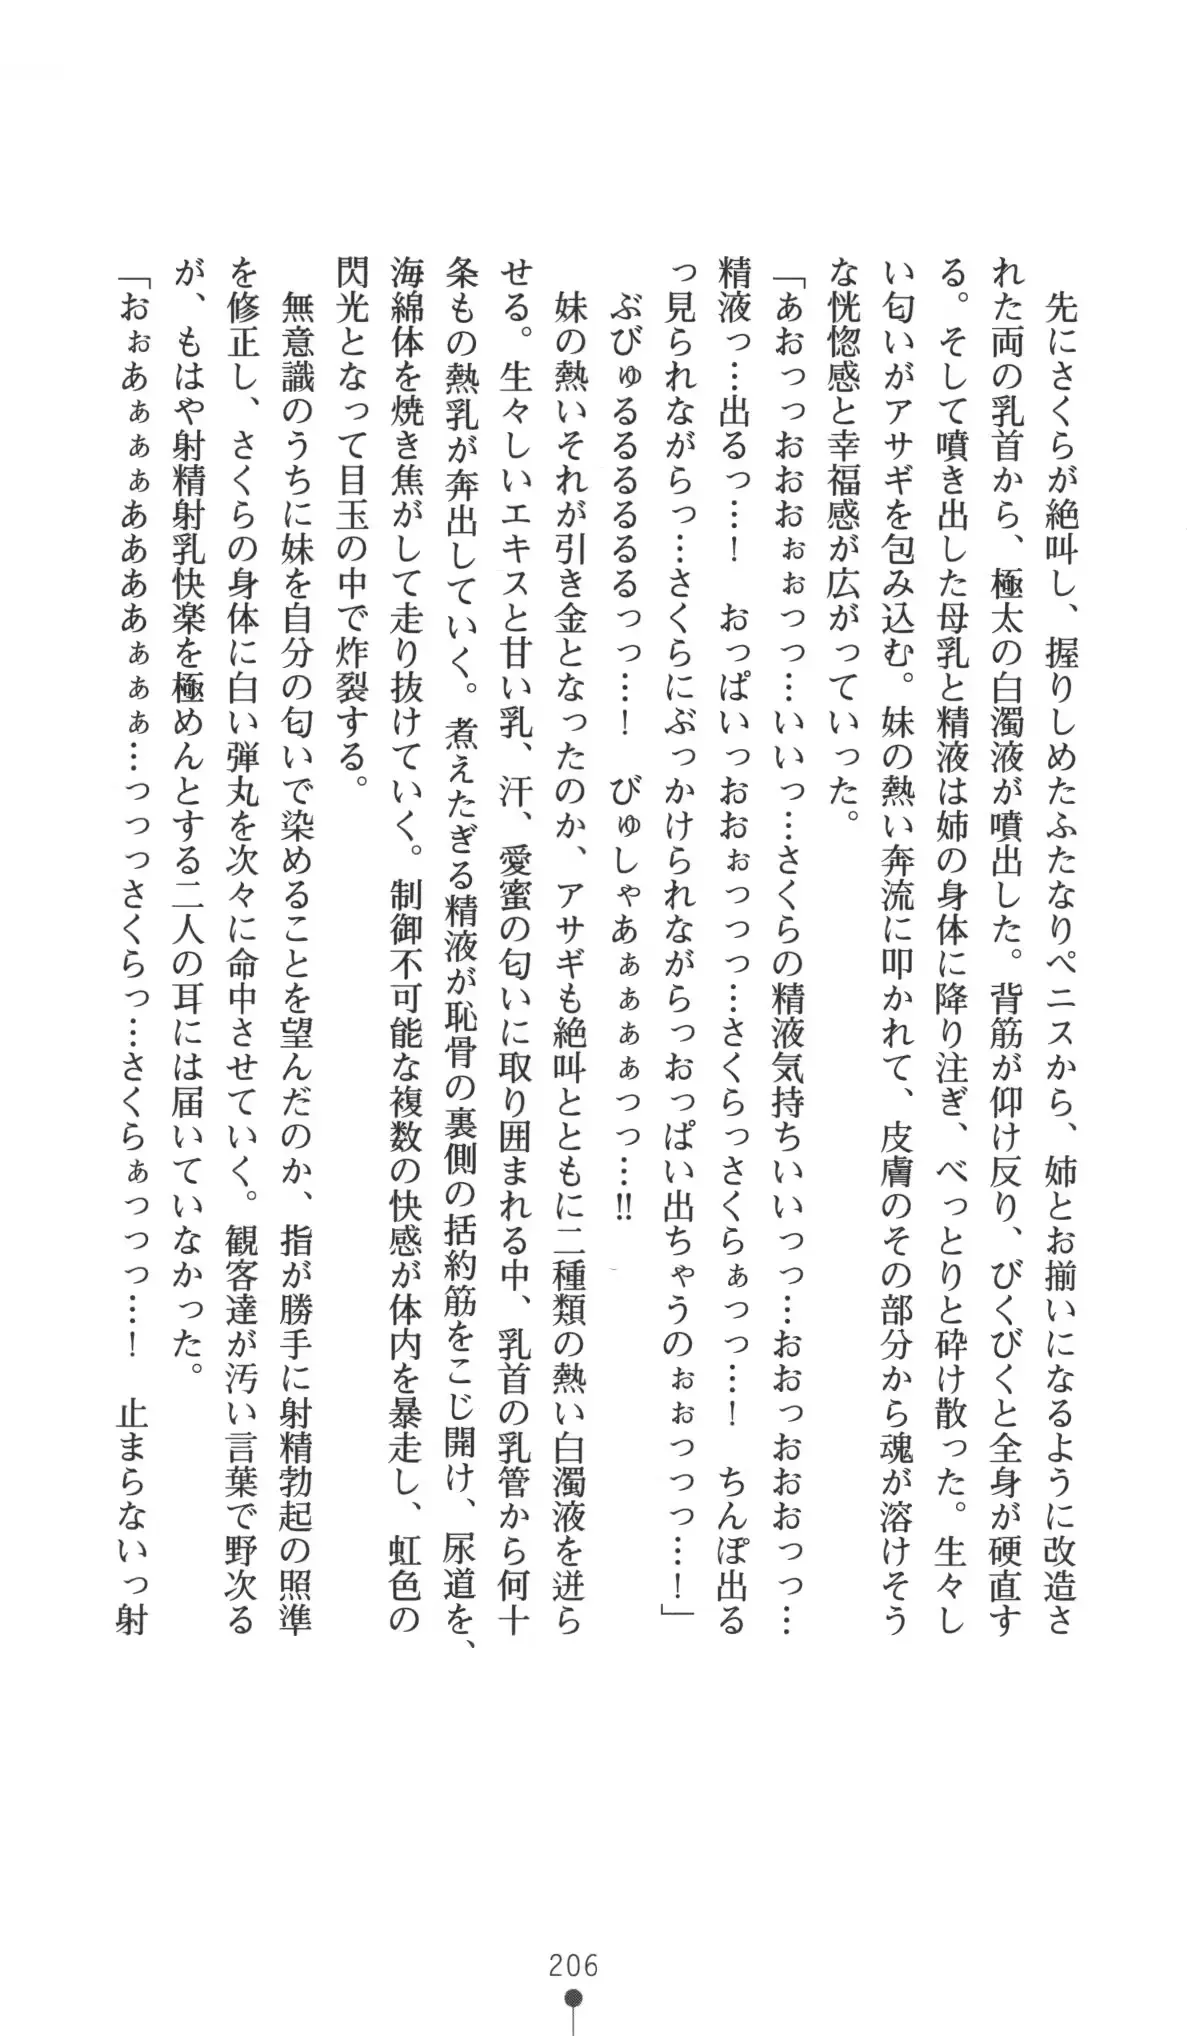 先にさくらが絶叫し、握りしめたふたなりペニスから、姉とお揃いになるように改造さ
れた両の乳首から、極太の白濁液が噴出した。背筋が仰け反り、びくびくと全身が硬直す
る。そして噴き出した母乳と精液は姉の身体に降り注ぎ、べっとりと砕け散った。生々し
い匂いがアサギを包み込む。妹の熱い奔流に叩かれて、皮膚のその部分から魂が溶けそう
な恍惚感と幸福感が広がっていった。
「あおっっおおおぉぉっっ…いいっ…さくらの精液気持ちいいっっ…おおっおおおっっ…
精液っ…出るっ…！　おっぱいっおおぉっっっ…さくらっさくらぁっっ…！　ちんぽ出る
っ見られながらっ…さくらにぶっかけられながらっおっぱい出ちゃうのぉぉっっっ…！」
ぶびゅるるるるるっっ…！　びゅしゃあぁぁぁぁっっ…!!
妹の熱いそれが引き金となったのか、アサギも絶叫とともに二種類の熱い白濁液を迸ら
せる。生々しいエキスと甘い乳、汗、愛蜜の匂いに取り囲まれる中、乳首の乳管から何十
条もの熱乳が奔出していく。煮えたぎる精液が恥骨の裏側の括約筋をこじ開け、尿道を、
海綿体を焼き焦がして走り抜けていく。制御不可能な複数の快感が体内を暴走し、虹色の
閃光となって目玉の中で炸裂する。
無意識のうちに妹を自分の匂いで染めることを望んだのか、指が勝手に射精勃起の照準
を修正し、さくらの身体に白い弾丸を次々に命中させていく。観客達が汚い言葉で野次る
が、もはや射精射乳快楽を極めんとする二人の耳には届いていなかった。
「おぉあぁぁぁあああぁぁぁ…っっっさくらっ…さくらぁっっっ…！　止まらないっ射
206